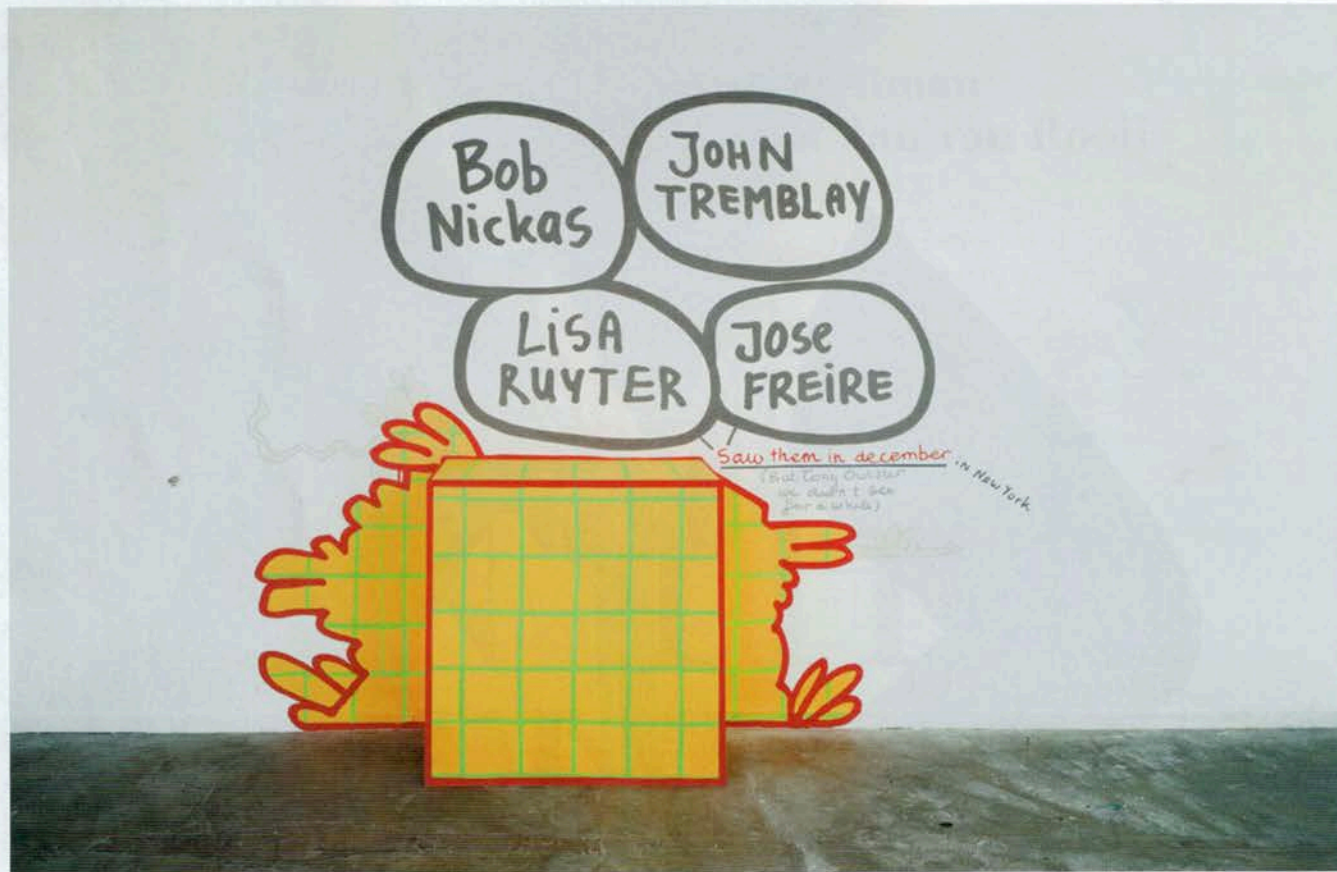 Bob
Nickas
JOHN
TREMBLAY
LiSA
RUYTER
JOSe
FREiRE
Saw them in december
iN New York
(But Tony Oursler
we didn't see
for a while)